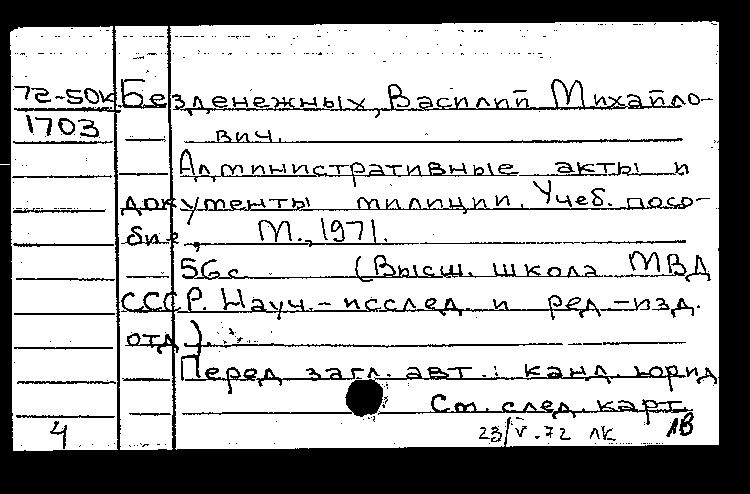 72-50к Безденежных, Василий Михайло-
1703 вич.
Административные акты и
документы милиции. Учеб. посо-
бие, М., 1971.
56 с (Высш. школа МВД
СССР. Науч.-исслед. и ред-изд.
отд).
Перед загл. авт.: канд. юрид
См. след. карт.
4 23/V.72 ЛК 1В